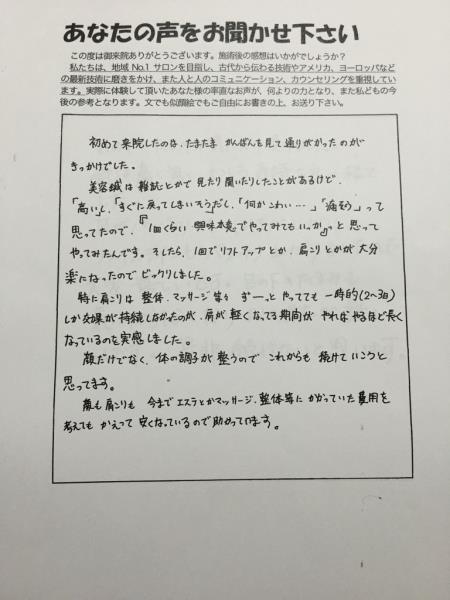 あなたの声をお聞かせ下さい
この度は御来院ありがとうございます。施術後の感想はいかがでしょうか？
私たちは、地域 No.1 サロンを目指し、古代から伝わる技術やアメリカ、ヨーロッパなど
の最新技術に磨きをかけ、また人と人のコミュニケーション、カウンセリングを重視していま
す。実際に体験して頂いたあなた様の率直なお声が、何よりの力となり、また私どもの今
後の参考となります。文でも似顔絵でもご自由にお書きの上、お送り下さい。
初めて来院したのは、たまたま かんばんを見て通りがかったのが
きっかけでした。
美容鍼は雑誌とかで見たり聞いたりしたことがあるけど、
「高い」し、「すぐに戻ってしまいそう」だし、「何かこわい…」「痛そう」って
思ってたので、『1回くらい 興味本意でやってみてもいっか』っと思って
やってみたんです。そしたら、1回でリフトアップとか、肩こりとかが大分
楽になったのでビックリしました。
特に肩こりは整体、マッサージ等々 ずーっとやってても一時的(2〜3日)
しか効果が持続しなかったのが、肩が軽くなってる期間が やればやるほど長く
なっているのを実感しました。
顔だけでなく、体の調子が整うので これからも続けていこうと
思ってます。
顔も肩こりも 今までエステとかマッサージ、整体等にかかっていた費用を
考えても かえって安くなっているので助かってます。